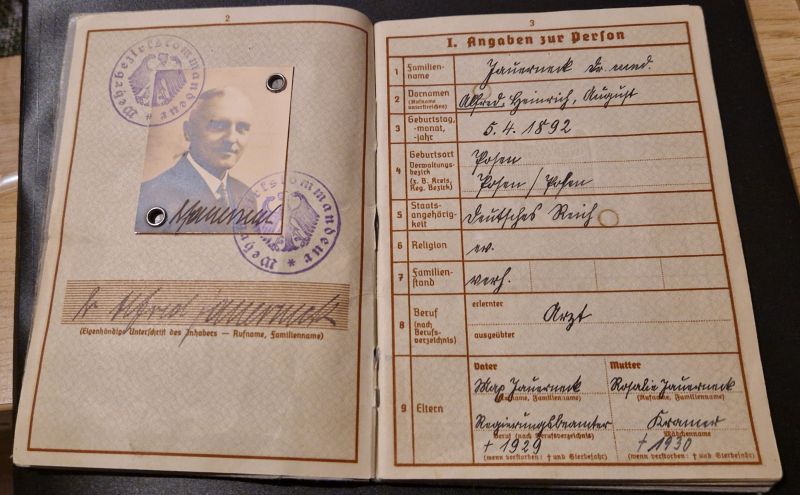 2
Wehrbezirkskommandeur
Dr Alfred Jauerneck
(Eigenhändige Unterschrift des Inhabers — Rufname, Familienname)
3
I. Angaben zur Person
1 Familien-
name
Jauerneck Dr. med.
2 Vornamen
(Rufname
unterstreichen)
Alfred, Heinrich, August
3 Geburtstag,
-monat,
-jahr
5. 4. 1892
4 Geburtsort
Verwaltungs-
bezirk
(z. B. Kreis,
Reg. Bezirk)
Posen
Posen / Posen
5 Staats-
angehörig-
keit
Deutsches Reich
6 Religion
ev.
7 Familien-
stand
verh.
8 Beruf
(nach
Berufs-
verzeichnis)
erlernter
Arzt
ausgeübter
9 Eltern
Vater
Max Jauerneck
(Rufname, Familienname)
Regierungsbeamter
Beruf (nach Berufsverzeichnis)
† 1929
(wenn verstorben: † und Sterbejahr)
Mutter
Rosalie Jauerneck
(Rufname, Familienname)
Kramer
Mädchenname
† 1930
(wenn verstorben: † und Sterbejahr)